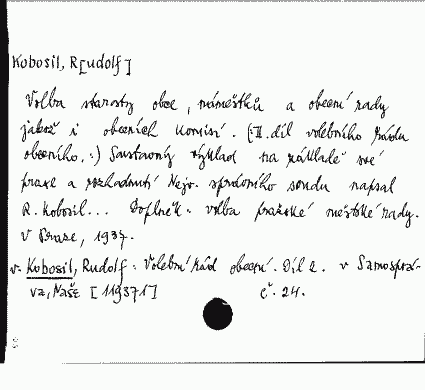 Kobosil, R[udolf]
Volba starosty obce, náměstků a obecní rady
jakož i obecních komisí. (:II. díl volebního řádu
obecního.:) Soustavný výklad na základě své
praxe a rozhodnutí Nejv. správního soudu napsal
R. Kobosil... Doplněk: volba pražské městské rady.
V Praze, 1937.
v. Kobosil, Rudolf: Volební řád obecní. Díl 2. v Samosprá-
va, Naše [119371] č. 24.